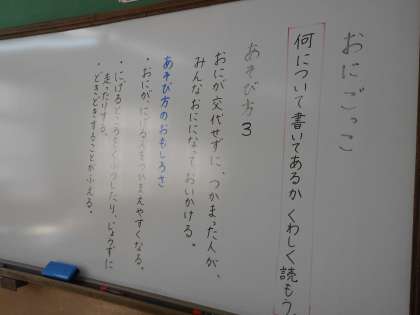 おにごっこ
何について書いてあるか くわしく読もう。
あそび方3
おにが交代せずに、つかまった人が、
みんなおにになっておいかける。
あそび方のおもしろさ
・おにが、にげる人をつかまえやすくなる。
・にげるところをくふうしたり、じょうずに
走ったりする。
・どきどきすることがふえる。